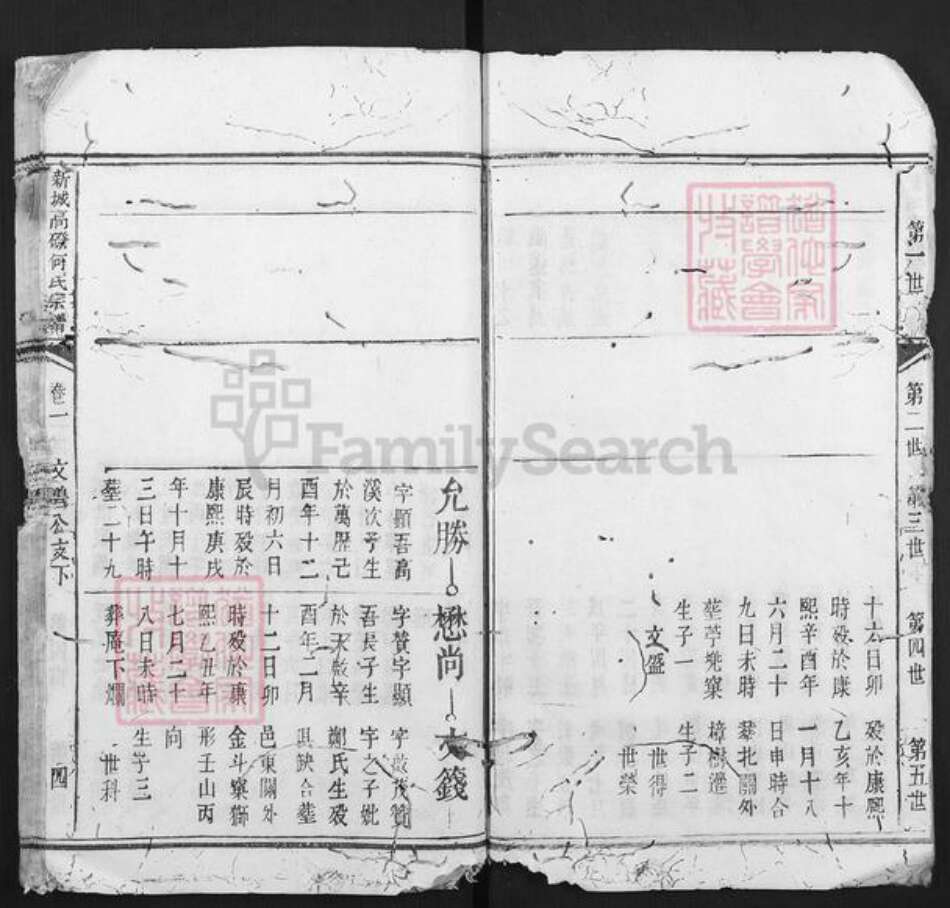 第一世
第二世
第三世
第四世
第五世
十六日卯
時殁於康
熙辛酉年
六月二十
九日未時
塟苧兜窠
生子一
文盛
殁於康熙
乙亥年十
一月十八
日申時合
塟北關外
樟樹邊
生子二
世得
世榮
允勝
字顯吾高
溪次子生
於萬曆己
酉年十二
月初六日
辰時殁於
康熙庚戌
年十月十
三日午時
塟二十九
懋尚
字贊字顯
吾長子生
於天啟辛
酉年二月
十二日卯
時殁於康
熙乙丑年
七月二十
八日未時
葬庵下瀾
文錢
字啟茂贊
字之子妣
謝氏生殁
俱缺合塟
邑東關外
金斗窠獅
形壬山丙
向
生子三
世科
新城高磜何氏宗譜
卷一
文獸公支下
四
FamilySearch
譜學會